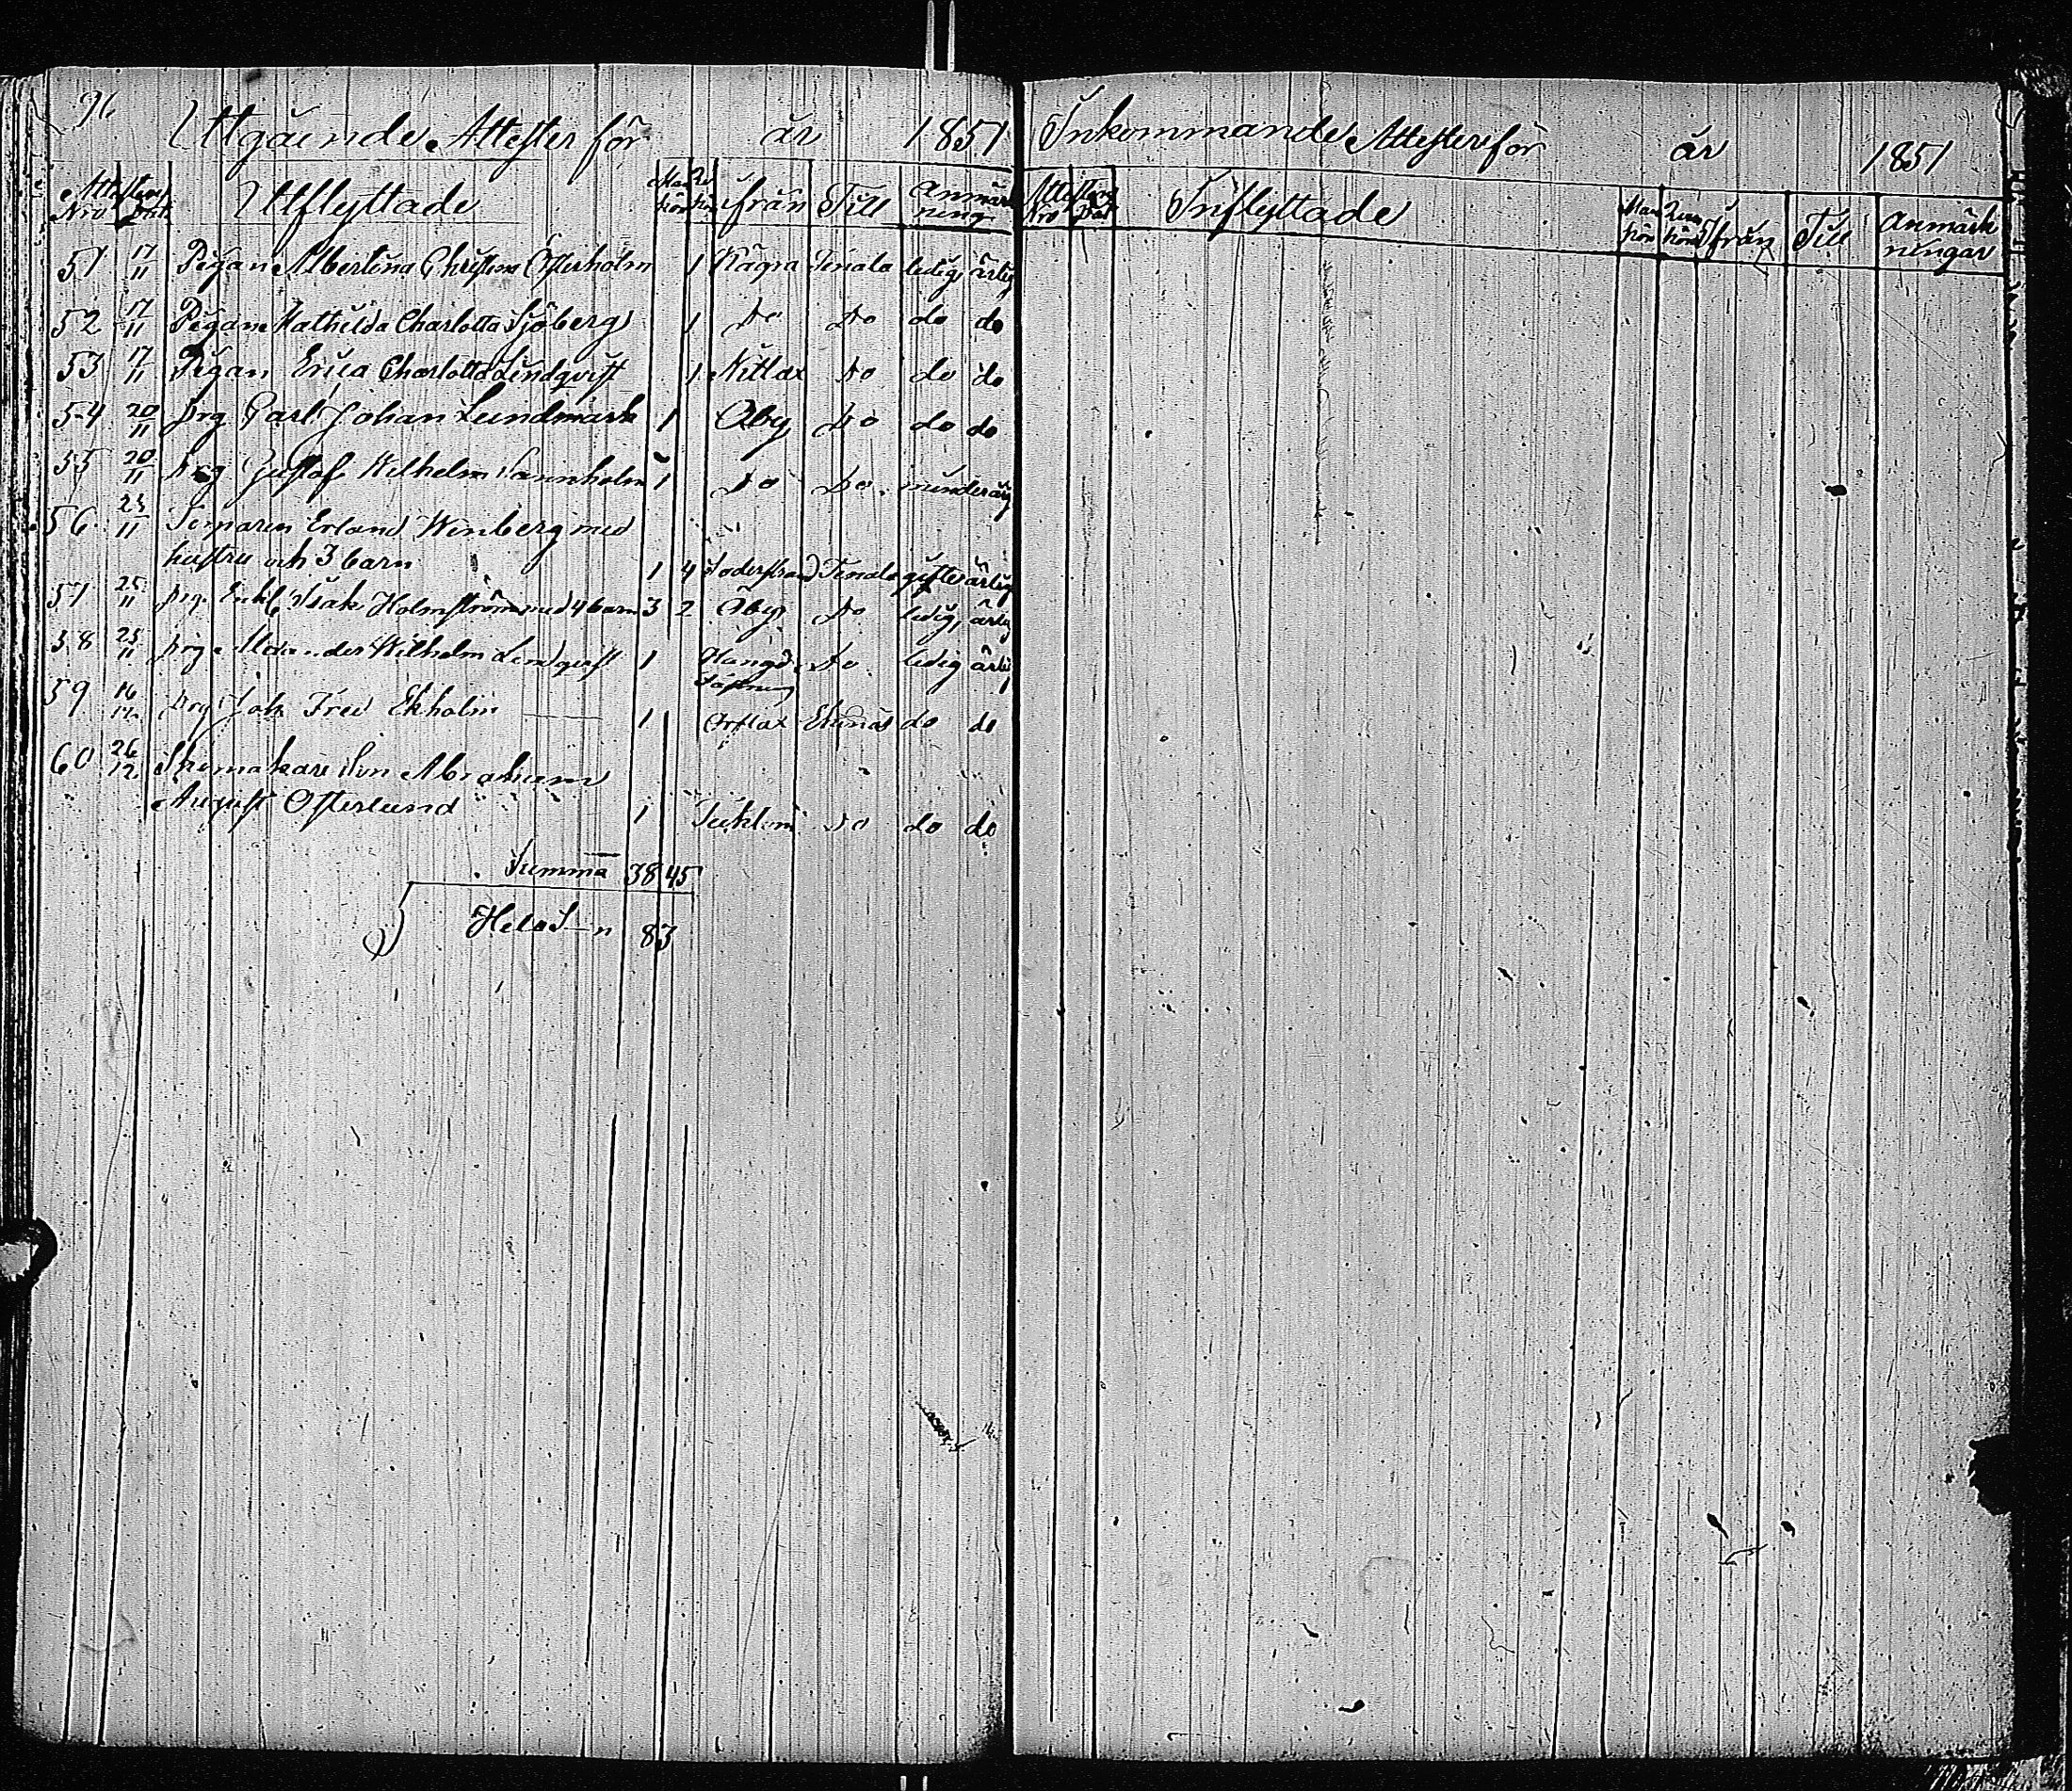 96
Utgående Attester för år 1851
Attestens
Nro Dat Utflyttade Man kön Qv kön från Till Anmärkning
51 17/11 Pigan Albertina Christina Österholm 1 Kägra Tenala ledig, ärlig
52 17/11 Pigan Mathilda Charlotta Sjöberg 1 Do Do do do
53 17/11 Pigan Erica Charlotta Lindqvist 1 Kitlax Do do do
54 20/11 Drg Carl Johan Lundmark 1 Åby Do do do
55 20/11 Drg Gustaf Wilhelm 1 Do Do minderårig
56 25/11 Erland Winberg med
hustru och 3 barn 1 4 Söderstrand Tenala gifte ärlig
57 25/11 Drg Enkl Isak Holmström med 4 barn 3 2 Åby Do ledig, ärlig
58 25/11 Drg Alexander Wilhelm Lindqvist 1 Hangö Do ledig ärlig
59 16/12 Drg Joh Fred Ekholm 1 Ekenäs do do
60 26/12 Skomakare Son Abraham
August Österlund 1 Do do do
Summa 38 45
Hela S—n 83
Inkommande Attester för år 1851
Attestens
Nro Dat Inflyttade Man kön Qvin kön från Till Anmärkningar